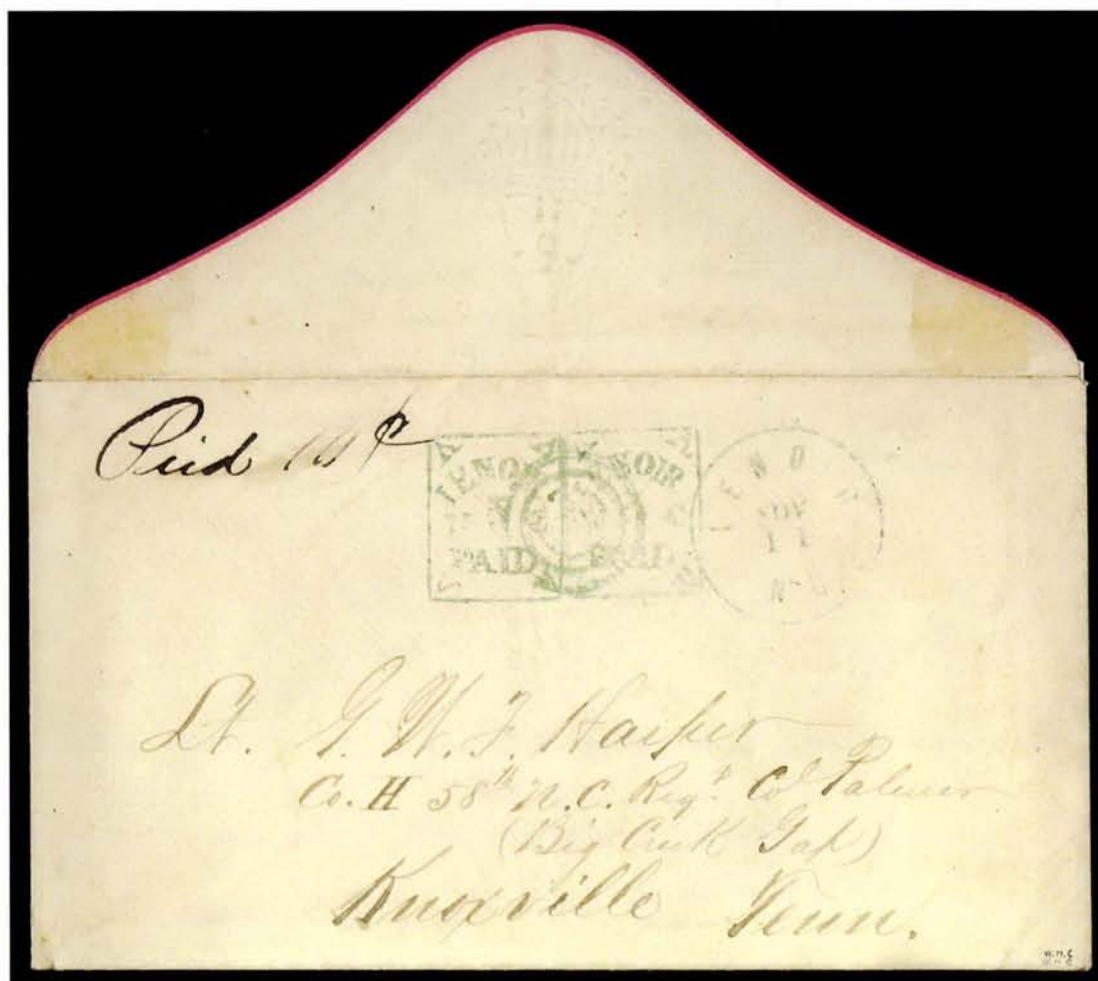 Paid 10 ¢
LENOIR
PAID
LENOIR
NOV
11
N.C.
Lt. G. W. F. Harper
Co. H 58th N.C. Regt. Col Palmer
(Big Creek Gap)
Knoxville Tenn.